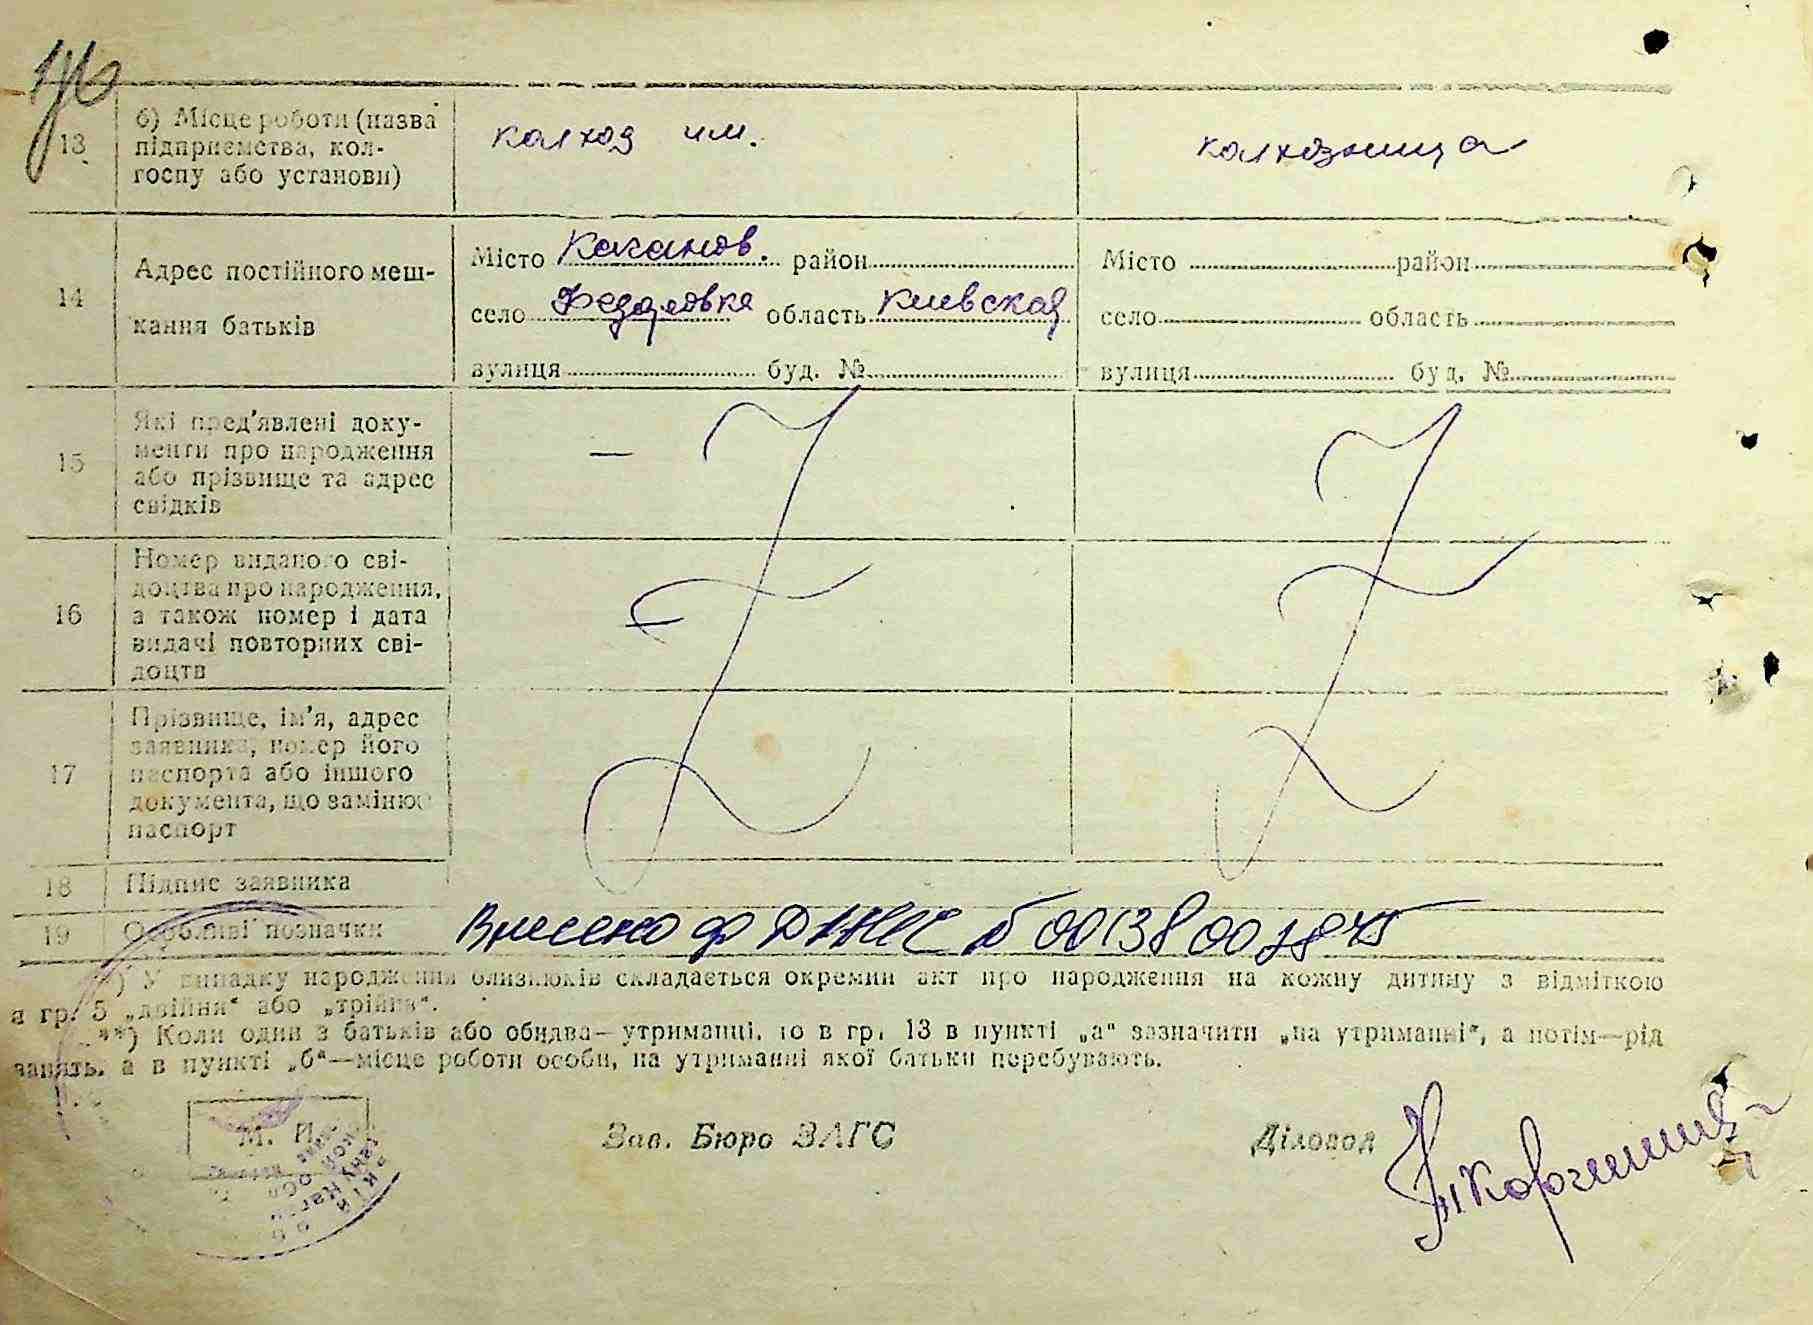 13 б) Місце роботи (назва підприємства, колгоспу або установи) колхоз им. колхозница
14 Адрес постійного мешкання батьків
Місто Каганов. район Місто район
село Федоровка область Киевская село область
вулиця буд. № вулиця буд. №
15 Які пред'явлені документи про народження або прізвище та адрес свідків —
16 Номер виданого свідоцтва про народження, а також номер і дата видачі повторних свідоцтв
17 Прізвище, ім'я, адрес заявника, номер його паспорта або іншого документа, що замінює паспорт
18 Підпис заявника
19 Особливі позначки Внесено
*) У випадку народження близнюків складається окремий акт про народження на кожну дитину з відміткою
в гр. 5 „двійня“ або „трійня“.
**) Коли один з батьків або обидва—утриманці, то в гр. 13 в пункті „а“ зазначити „на утриманні“, а потім—рід
занять, а в пункті „б“—місце роботи особи, на утриманні якої батьки перебувають.
М. П. Зав. Бюро ЗАГС Діловод